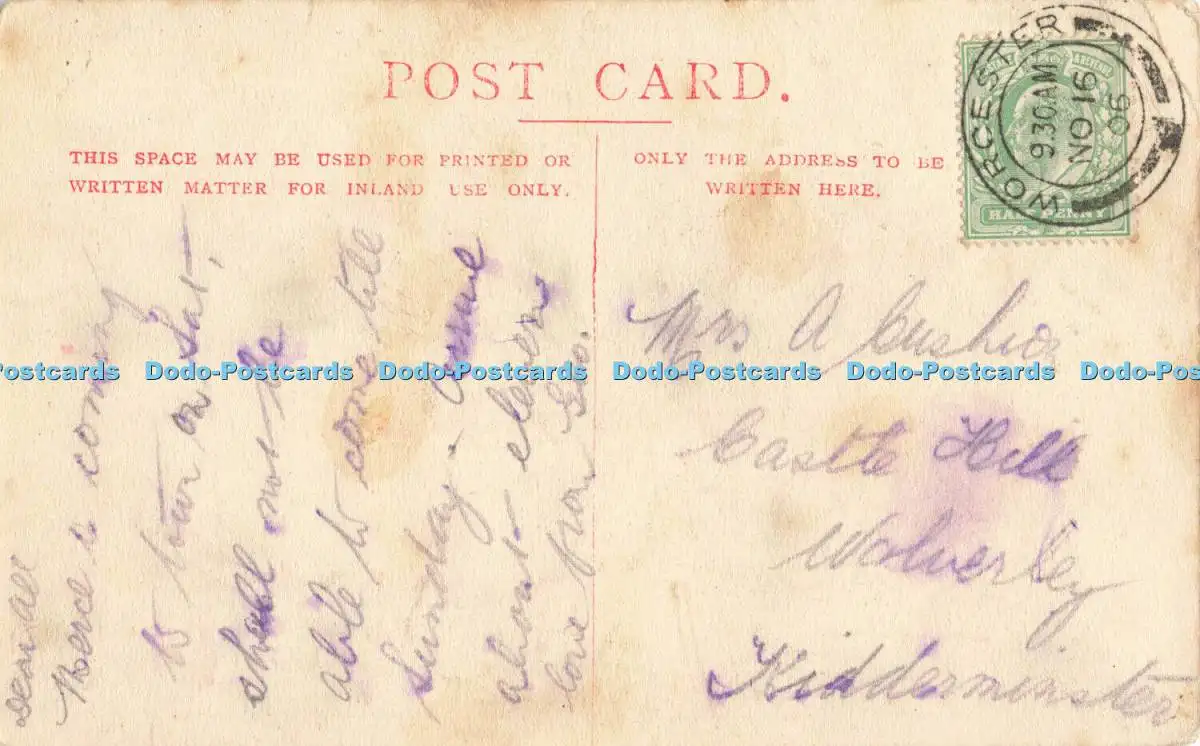 POST CARD.
THIS SPACE MAY BE USED FOR PRINTED OR
WRITTEN MATTER FOR INLAND USE ONLY.
ONLY THE ADDRESS TO BE
WRITTEN HERE.
WORCESTER
9.30AM
NO 16
06
HALF PENNY
Dear all
is coming
to town on Sat,
shall not be
able to come till
Sunday. Same
about eleven
love from Geo.
Mrs A Cushion
Castle Hill
Wolverley
Kidderminster
Postcards Dodo-Postcards Dodo-Postcards Dodo-Postcards Dodo-Postcards Dodo-Pos